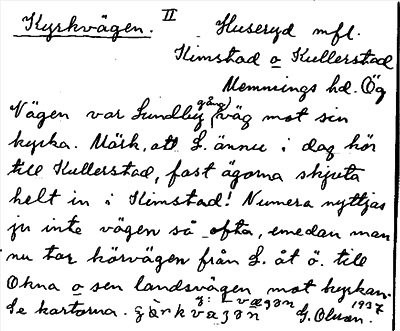 Kyrkvägen. II Huseryd mfl.
Kimstad o Kullerstad
Memmings hd. Ög
Vägen var Lundby (gång)väg mot sin
kyrka. Märk, att L. ännu i dag hör
till Kullerstad, fast ägorna skjuta
helt in i Kimstad! Numera nyttjas
ju inte vägen så ofta, emedan man
nu tar körvägen från L. åt ö. till
Okna o sen landsvägen mot kyrkan.
Se kartorna. 1937
G. Olsson.